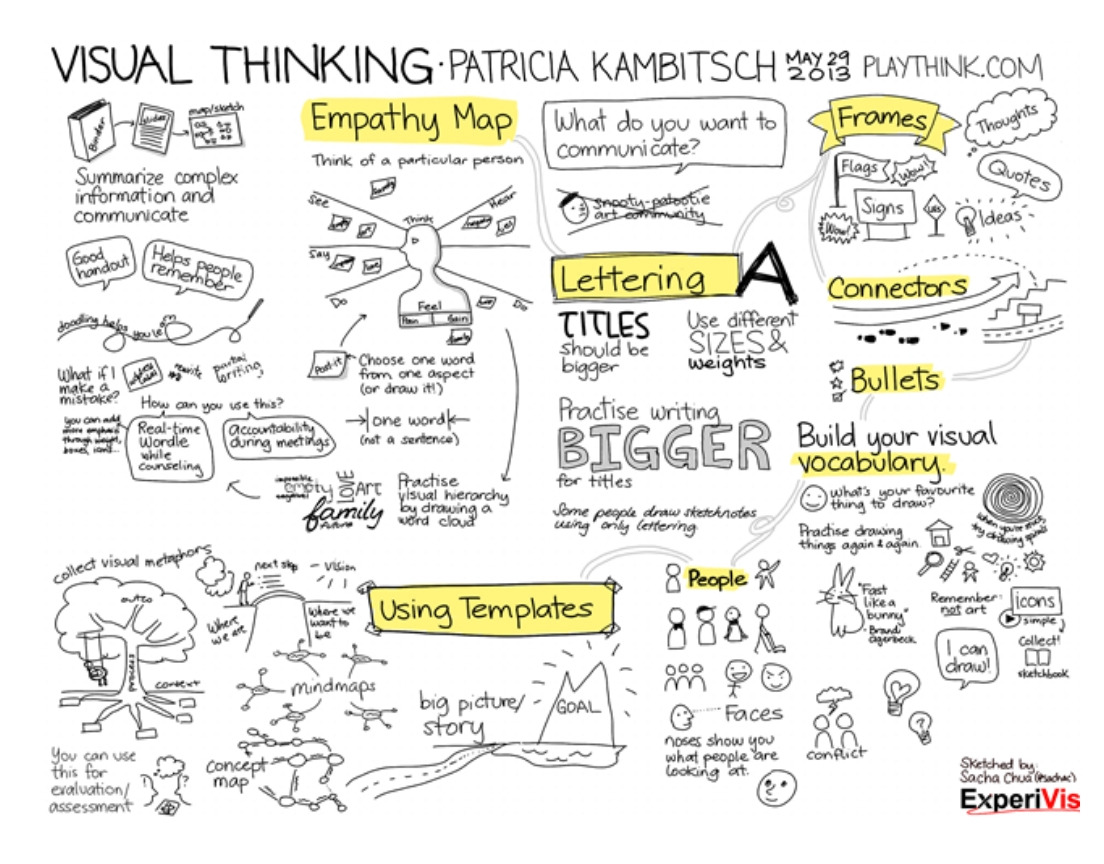 VISUAL THINKING · PATRICIA KAMBITSCH MAY 29 2013 PLAYTHINK.COM
Binder
slides
map/sketch
Summarize complex
information and
communicate
Good
handout
Helps people
remember
doodling helps you learn
What if I
make a
mistake?
rewrite
partial
writing
you can add
more emphasis
through weight,
boxes, icons...
How can you use this?
Real-time
Wordle
while
counseling
accountability
during meetings
Empathy Map
Think of a particular person
See
Think
Hear
Say
Do
Feel
Pain
Gain
Do
Post-it
Choose one word
from one aspect
(or draw it!)
one word
(not a sentence)
empty
LOVE
Art
family
future
Practise
visual hierarchy
by drawing a
word cloud
What do you want to
communicate?
Snooty-patootie
art community
Lettering A
TITLES
should be
bigger
Use different
SIZES &
weights
Practise writing
BIGGER
for titles
Some people draw sketchnotes
using only lettering
Frames
Thoughts
Flags
Wow!
Quotes
Signs
Wow!
Ideas
Connectors
Bullets
Build your visual
vocabulary.
What's your favourite
thing to draw?
when you're stuck,
try drawing spirals
Practise drawing
things again & again.
"Fast
like a
bunny"
- Brandy
Agerbeck
Remember:
not art
icons
simple
I can
draw!
Collect!
sketchbook
conflict
People
Faces
noses show you
what people are
looking at.
Using Templates
collect visual metaphors
outco
process
context
next step
Vision
Where
we are
Where we
want to
be
mindmaps
concept
map
big picture/
story
GOAL
You can use
this for
evaluation/
assessment
Sketched by:
Sacha Chua (@sachac)
ExperiVis